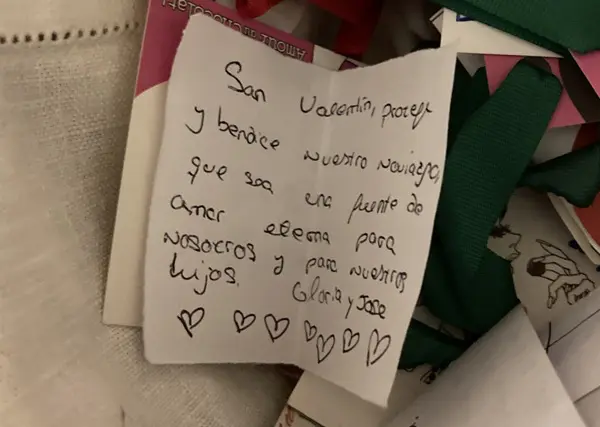 Amour au chocolat!
San Valentín, protege
y bendice nuestro noviazgo,
que sea una fuente de
amor eterna para
nosotros y para nuestros
hijos.
Gloria y Jose